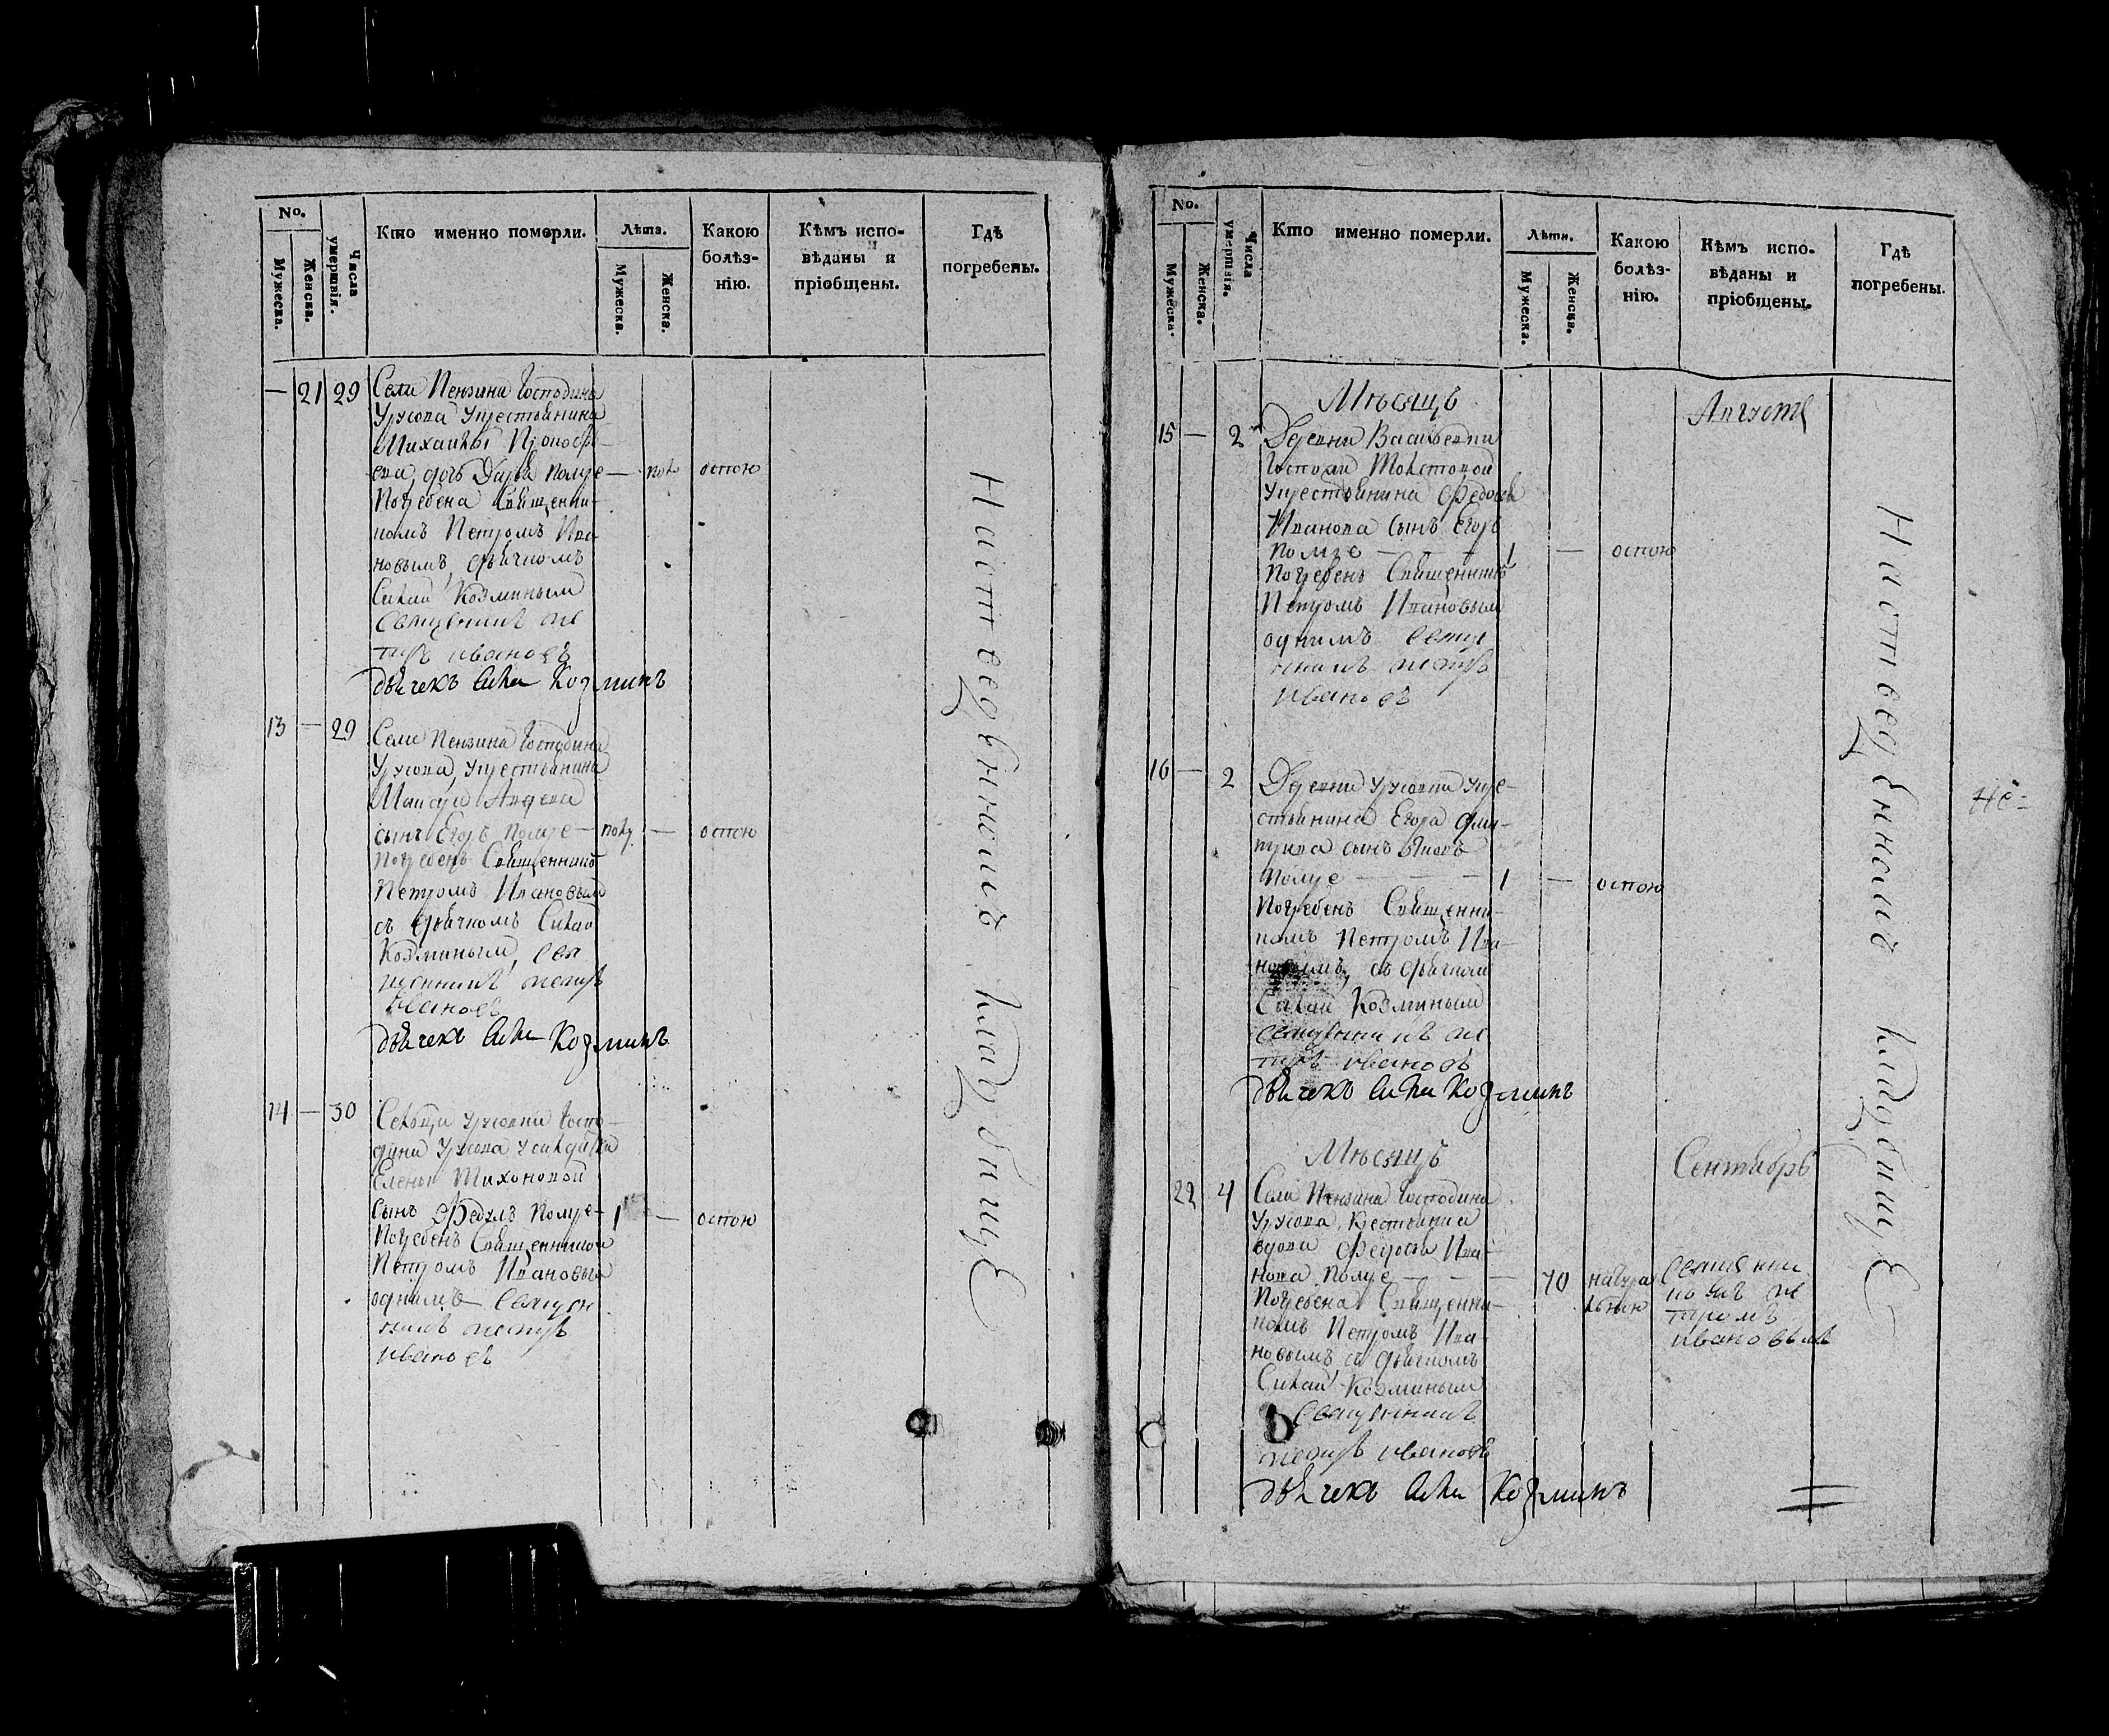 No.
Мужеска.
Женска.
Числа умертвія.
Кто именно померли.
Лѣта.
Мужеска.
Женска.
Какою болѣз-
нію.
Кѣмъ испо-
вѣданы и
пріобщены.
Гдѣ
погребены.
— 21 29 Села Пензина Господина
Урусова крестьянина
Михаилы Прокофь-
ева дочь Дарья помре — пол. оспою
Погребена Священни-
комъ Петромъ Ива
новымъ, дьячкомъ
Силай Козминым
Священникъ пе
тръ ивановъ
дьячекъ Сила Козминъ
13 — 29 Села Пензина Господина
Урусова, крестьянина
сынъ Егоръ помре — полу — оспою
Погребенъ Священником
Петромъ Ивановым
съ дьячкомъ Силай
Козминым, Свя
щенникъ петръ
ивановъ
дьячекъ Сила Козминъ
14 — 30 Сельца Урусовки Госпо-
дина Урусова у солдатки
Елены Тихоновой
сынъ помре — 1 — оспою
Погребенъ Священником
Петромъ Ивановым
однимъ Священ
никъ петръ
ивановъ
На отведенномъ кладбищѣ
No.
Мужеска.
Женска.
Числа умертвія.
Кто именно померли.
Лѣта.
Мужеска.
Женска.
Какою
болѣз-
нію.
Кѣмъ испо-
вѣданы и
пріобщены.
Гдѣ
погребены.
Мѣсяцъ Августъ
15 — 2 Деревни Васильевки
Госпожи Толстовой
крестьянина Федосея
Иванова сынъ Егоръ
помре — 1 — оспою
Погребенъ Священником
Петромъ Ивановым
однимъ Свяще
нникъ петръ
ивановъ
16 — 2 Деревни Урусовки кре-
стьянина Егора Дми-
триева сынъ Яковъ
помре — — — 1 — оспою
Погребенъ Священни-
комъ Петромъ Ива-
новымъ, съ дьячком
Силай Козминым
священникъ пе
тръ ивановъ
дьячекъ Сила Козминъ
Мѣсяцъ Сентябрь
22 4 Села Пензина Господина
Урусова, крестьянка
вдова Федосья Ива-
нова помре — — — 70 натура
льною
Священни
комъ пе
тромъ
ивановымъ
Погребена Священни-
комъ Петромъ Ива-
новымъ съ дьячкомъ
Силай Козминым
Священникъ
петръ ивановъ
дьячекъ Сила Козминъ
На отведенномъ кладбищѣ